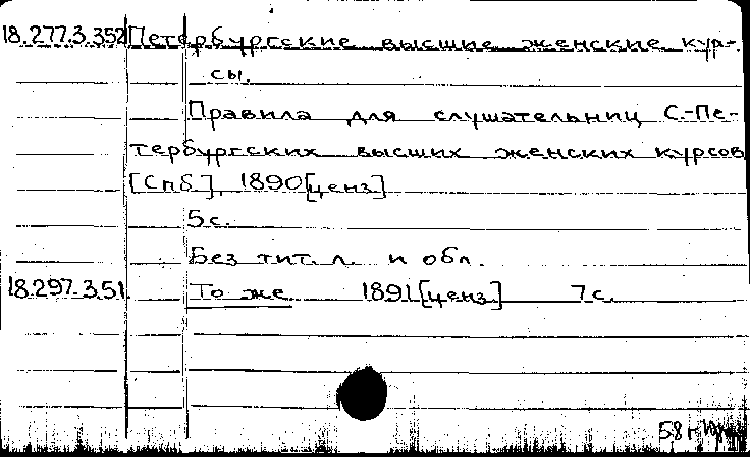 18.277.3.352 Петербургские высшие женские кур-
сы.
Правила для слушательниц С.-Пе-
тербургских высших женских курсов
[Спб], 1890[ценз]
5 с.
Без тит. л. и обл.
18.297.3.51 То же 1891[ценз] 7 с.
58 г